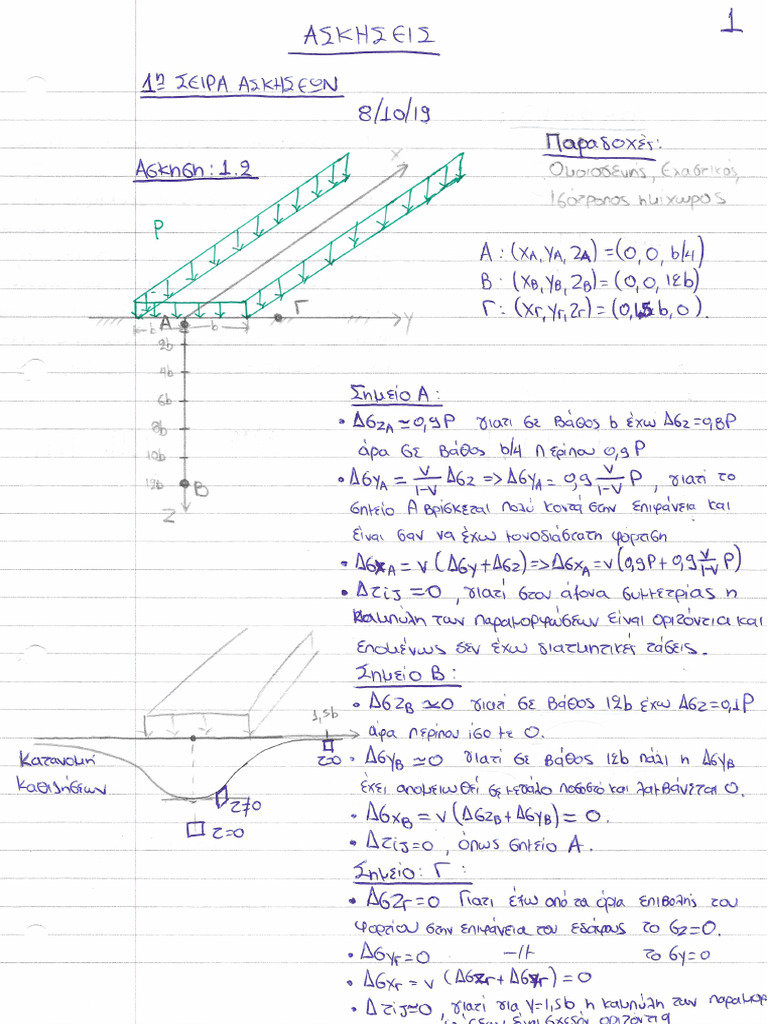 1
ΑΣΚΗΣΕΙΣ
1η ΣΕΙΡΑ ΑΣΚΗΣΕΩΝ
8/10/19
Παραδοχές:
Ομοιογενής, Ελαστικός,
Ισότροπος ημίχωρος
Άσκηση: 1.2
P
X
A: (xA, yA, zA) = (0, 0, b/4)
B: (xB, yB, zB) = (0, 0, 12b)
Γ: (xΓ, yΓ, zΓ) = (0, 1,5b, 0).
A
Γ
Y
b
b
2b
4b
6b
8b
10b
12b
B
Z
Σημείο Α:
• ΔσzA ≃ 0,9P γιατί σε βάθος b έχω Δσz = 0,8P
άρα σε βάθος b/4 περίπου 0,9P
• ΔσyA = ν/1-ν Δσz => ΔσyA = 0,9 ν/1-ν P, γιατί το
σημείο Α βρίσκεται πολύ κοντά στην επιφάνεια και
είναι σαν να έχω μονοδιάστατη φόρτιση
• ΔσxA = ν(Δσy + Δσz) => ΔσxA = ν(0,9P + 0,9 ν/1-ν P)
• Δτij = 0, γιατί στον άξονα συμμετρίας η
καμπύλη των παραμορφώσεων είναι οριζόντια και
επομένως δεν έχω διατμητικές τάσεις.
Σημείο Β:
• ΔσzB ≃ 0 γιατί σε βάθος 12b έχω Δσz = 0,1P
άρα περίπου ίσο με 0.
• ΔσyB ≃ 0 γιατί σε βάθος 12b πάλι η ΔσyB
έχει απομειωθεί σε μεγάλο ποσοστό και λαμβάνεται 0.
• ΔσxB = ν(ΔσzB + ΔσyB) = 0.
• Δτij = 0, όπως σημείο Α.
1,5b
τ=0
Κατανομή
καθιζήσεων
τ≠0
τ=0
Σημείο: Γ:
• ΔσzΓ = 0 Γιατί έξω από τα όρια επιβολής του
φορτίου στην επιφάνεια του εδάφους το σz = 0.
• ΔσyΓ = 0 -//- το σy = 0
• ΔσxΓ = ν(ΔσzΓ + ΔσyΓ) = 0
• Δτij ≃ 0, γιατί για y = 1,5b η καμπύλη των παραμορ
είναι σχεδόν οριζόντια